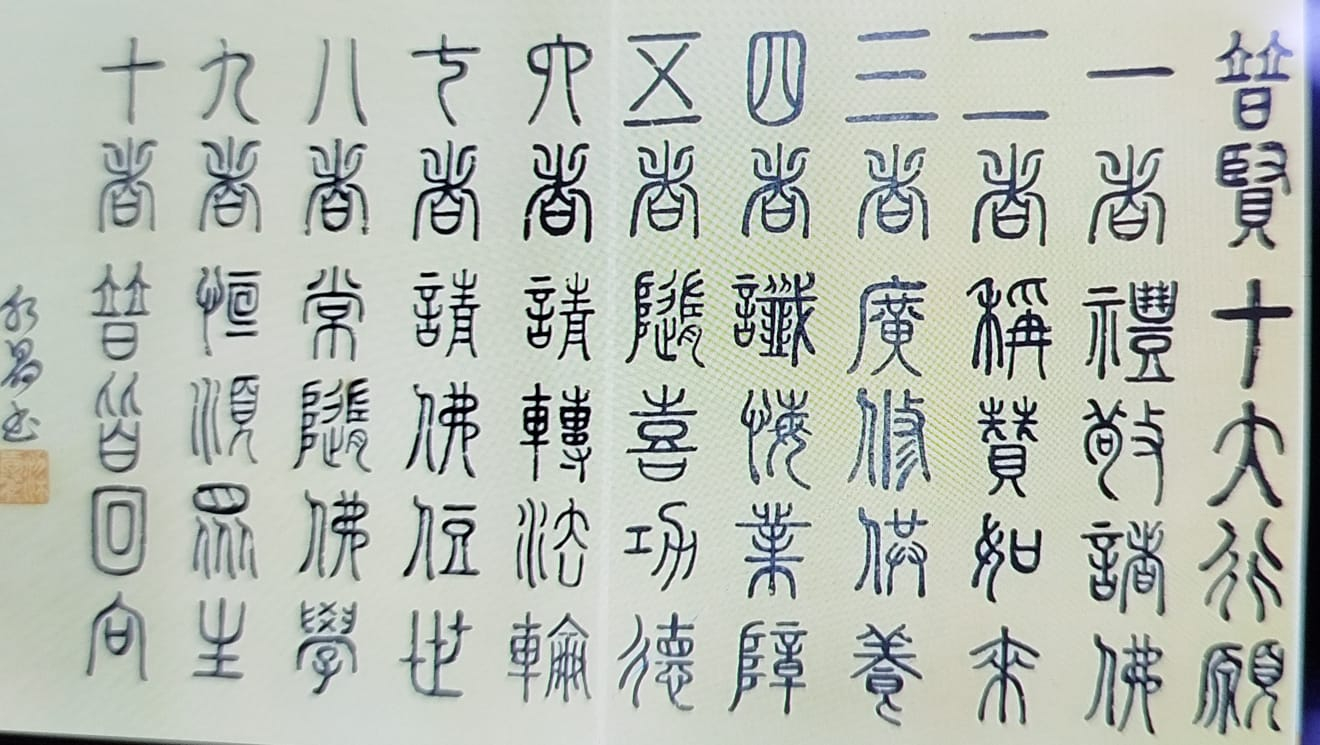 普賢十大行願
一者禮敬諸佛
二者稱贊如來
三者廣修供養
四者懺悔業障
五者隨喜功德
六者請轉法輪
七者請佛住世
八者常隨佛學
九者恒順眾生
十者普皆回向